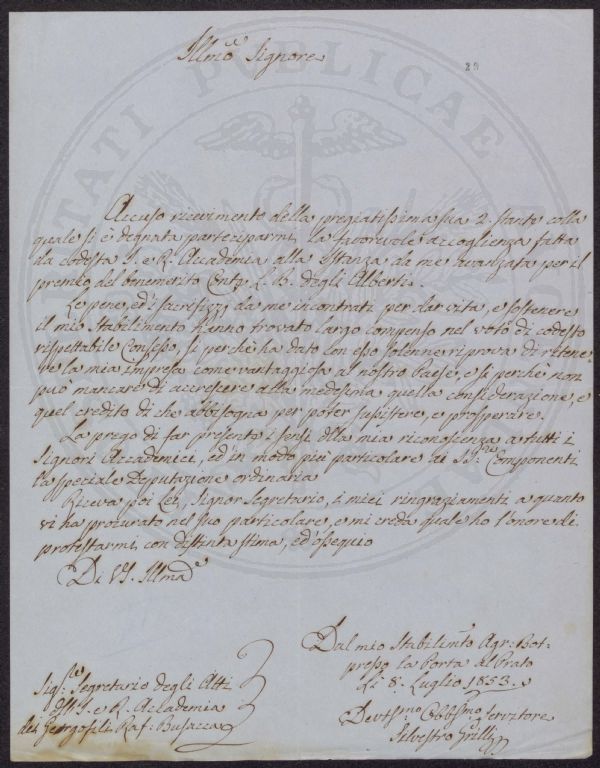 Illmo Signore
29
Accuso ricevimento della pregiatissima sua 2. stante colla
quale si è degnata parteciparmi la favorevole accoglienza fatta
da codesta I. e R. Accademia alla istanza da me avanzata per il
premio del benemerito Conte L. B. degli Alberti.
Le pene, ed i sacrifizj da me incontrati per dar vita, e sostenere
il mio Stabilimento hanno trovato largo compenso nel voto di codesto
rispettabile Consesso, sì perchè ha dato con esso solenne riprova di ritene-
re la mia impresa come vantaggiosa al nostro Paese, e sì perchè non
può mancare di accrescere alla medesima quella considerazione, e
quel credito di che abbisogna per poter sussistere, e prosperare.
La prego di far presente i sensi della mia riconoscenza a tutti i
Signori Accademici, ed in modo più particolare ai SSri Componenti
la speciale Deputazione ordinaria
Riceva poi Lei, Signor Segretario, i miei ringraziamenti a quanto
vi ha procurato nel suo particolare, e mi creda quale ho l'onore di
protestarmi con distinta stima, ed ossequio
Di VS. Illma
Dal mio Stabilimto Agr: Bot-
presso la Porta al Prato
Li 8. Luglio 1853.
Sigre Segretario degli Atti
dell'I. e R. Accademia
dei Georgofili Raf: Busacca
Devtssmo Obblssmo Servitore
Silvestro Grilli
TATI PUBLICAE